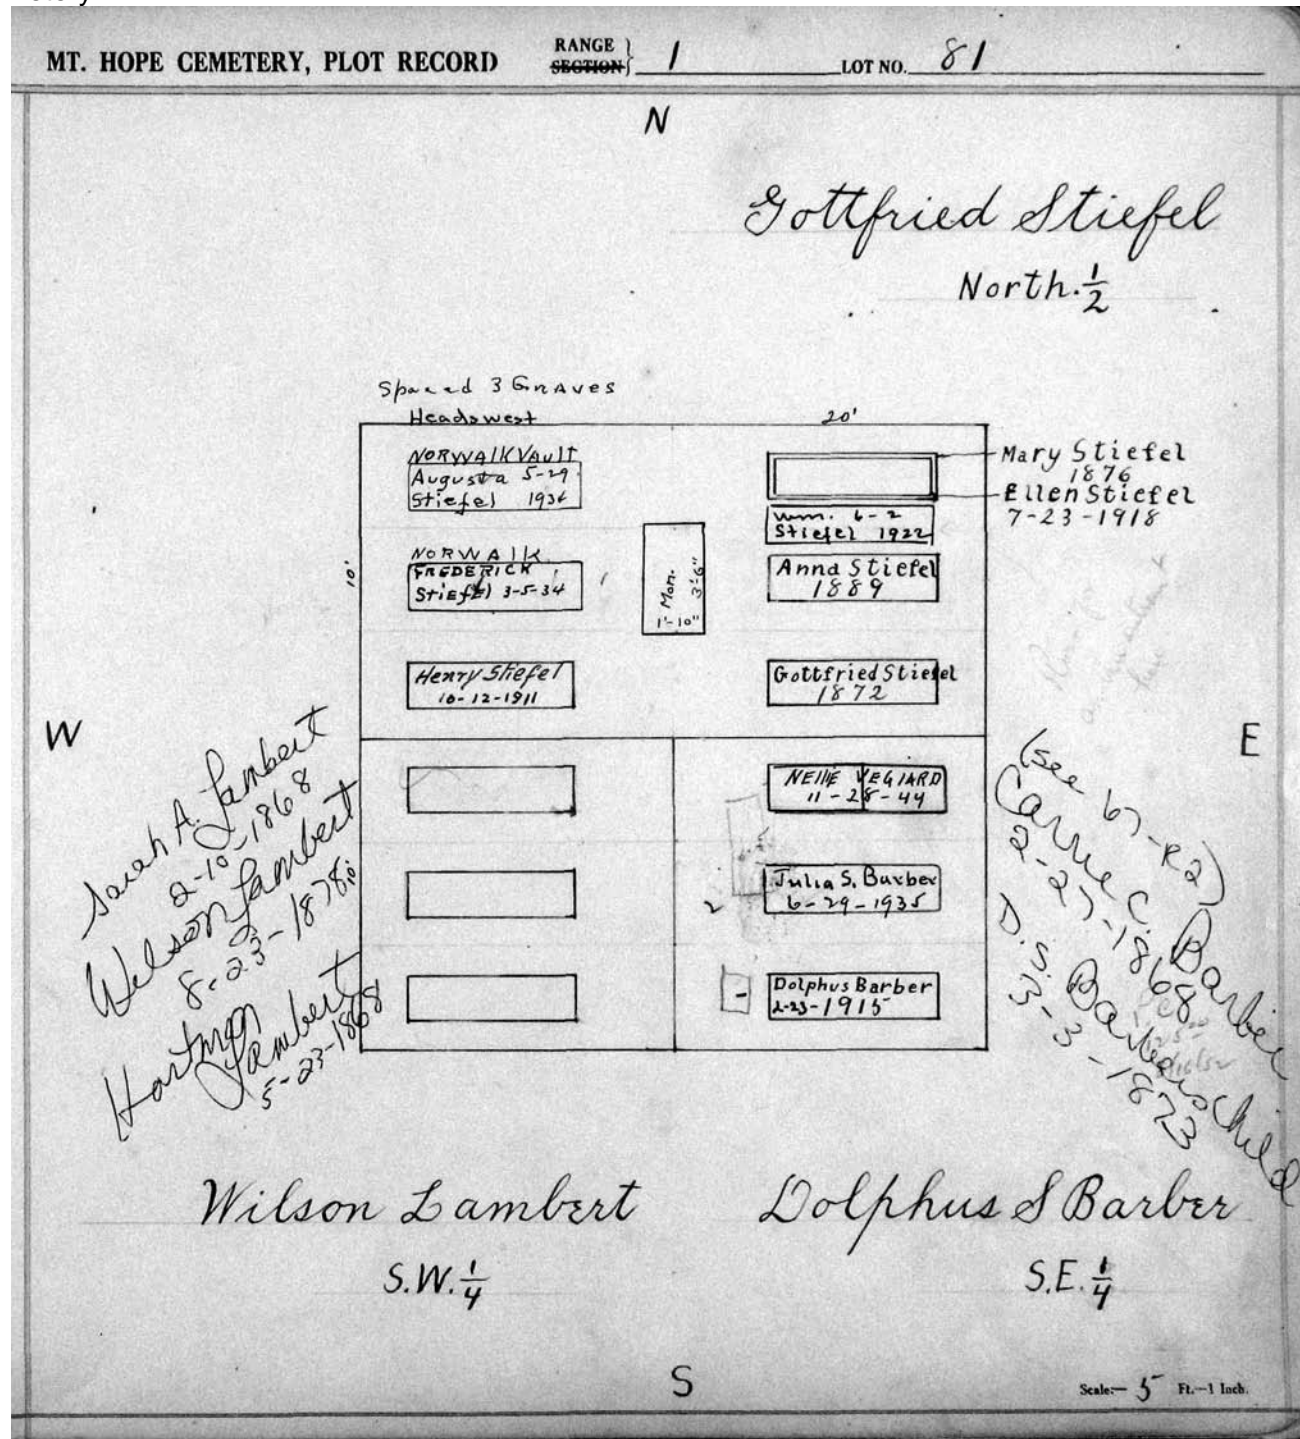 MT. HOPE CEMETERY, PLOT RECORD RANGE SECTION } 1 LOT NO. 81
N
Gottfried Stiefel
North. 1/2
Spaced 3 Graves
Heads west
20'
NORWALK VAULT
Augusta 5-29
Stiefel
Mary Stiefel
1876
Ellen Stiefel
7-23-1918
Wm. 6-2
Stiefel 1922
10'
NORWALK
FREDERICK
Stiefel 3-5-34
Mon.
3'-6"
1'-10"
Anna Stiefel
1889
Henry Stiefel
10-12-1911
Gottfried Stiefel
1872
W
E
Sarah A. Lambert
2-10-1868
Wilson Lambert
8-23-1878
Hartman
Lambert
5-23-1868
10'
NELLIE
11-28-44
Julia S. Barber
6-29-1935
2
Dolphus Barber
2-23-1915
(see 67-R2)
Carrie C. Barber
2-27-1868
D. S. Barbers Child
3-3-1873
Wilson Lambert
S.W. 1/4
Dolphus S Barber
S.E. 1/4
S
Scale:— 5 Ft.—1 Inch.